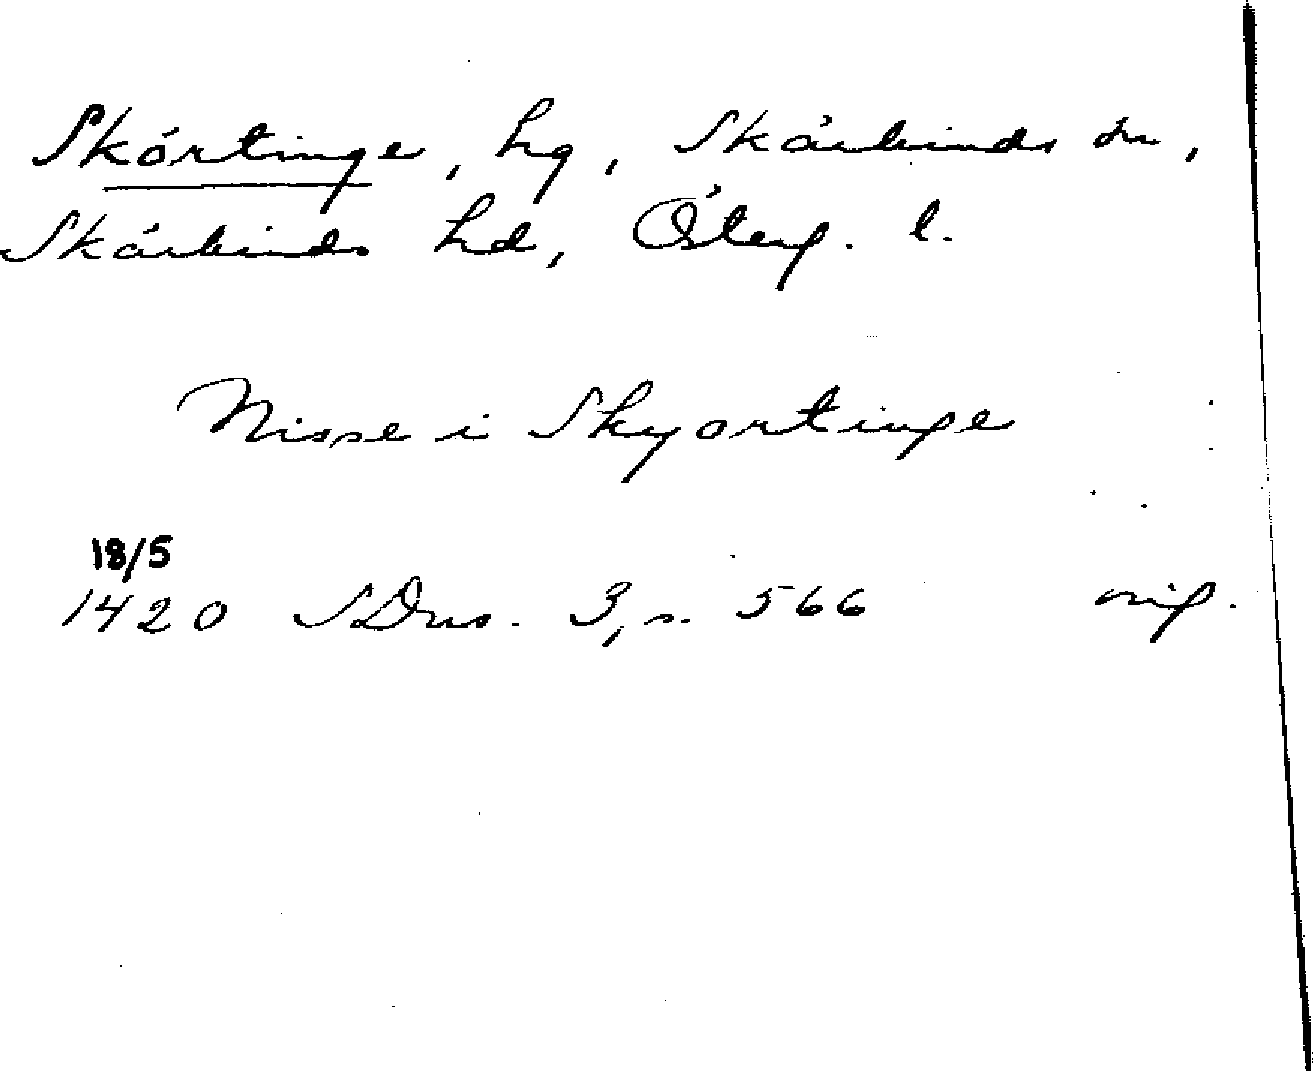 Skörtinge, hg, Skärkinds sn,
Skärkinds hd, Österg. l.
Nisse i Skyortinge
18/5
1420 SDns. 3, s. 566 orig.